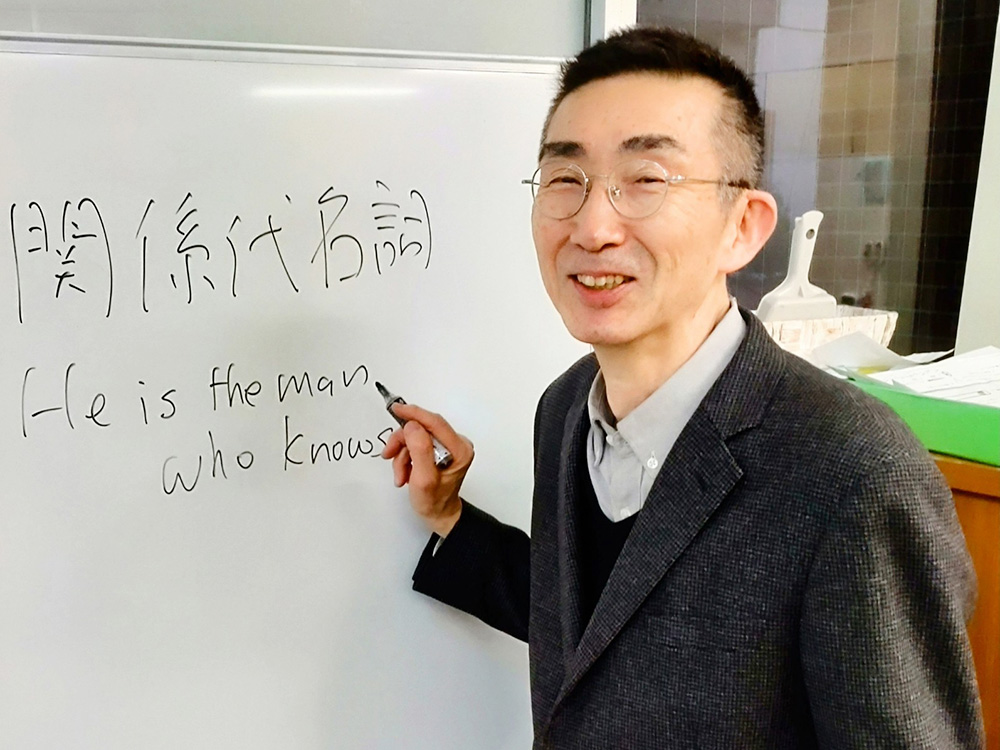 関係代名詞
He is the man
who knows